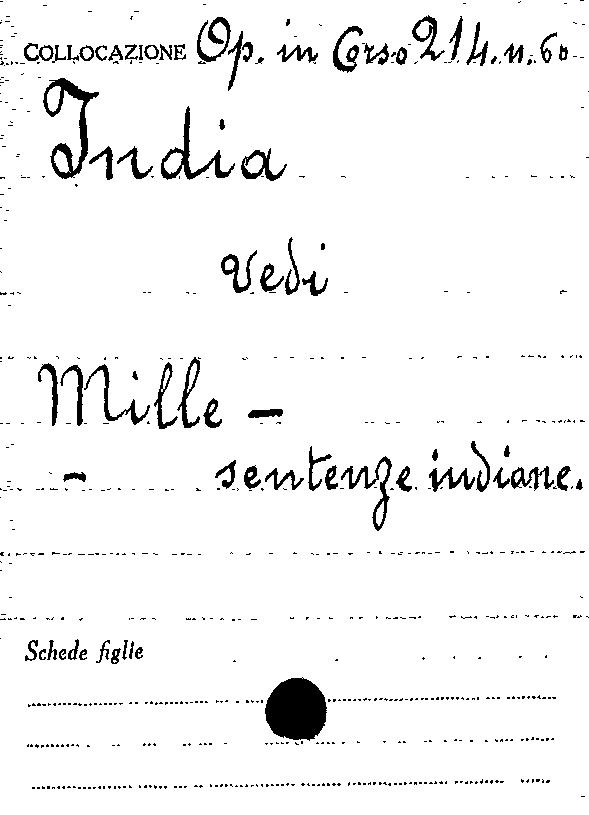 COLLOCAZIONE Op. in Corso 214. n. 60
India
Vedi
Mille —
- sentenze indiane.
Schede figlie